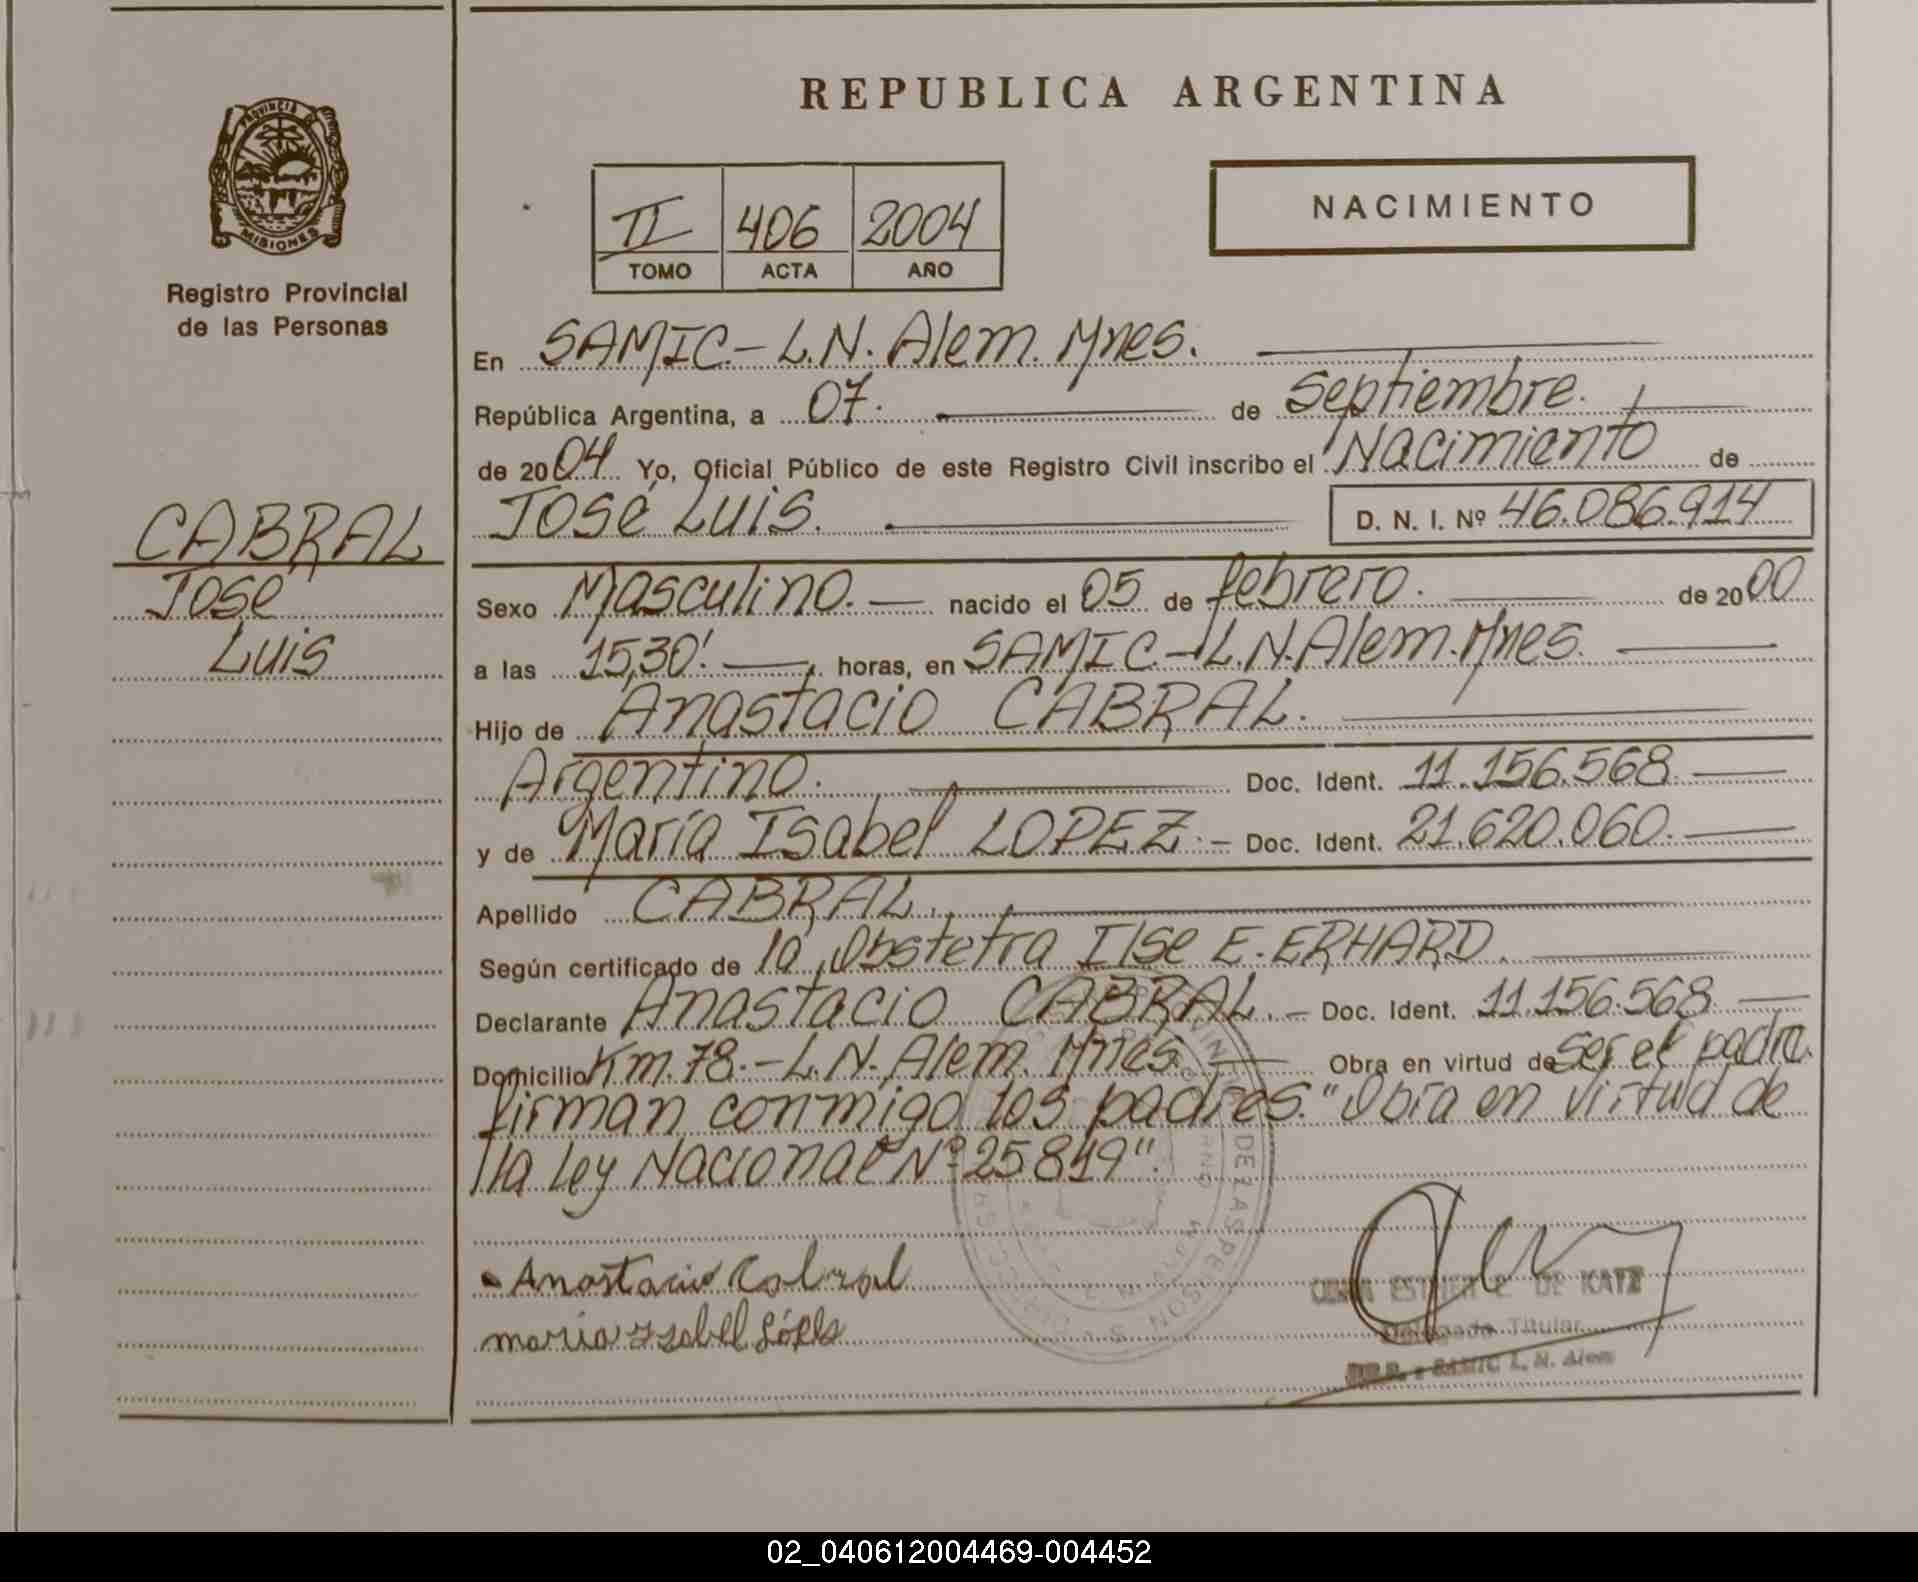 REPUBLICA ARGENTINA
PROVINCIA DE
MISIONES
Registro Provincial
de las Personas
II 406 2004
TOMO ACTA AÑO
NACIMIENTO
En SAMIC.- L.N. Alem. Mnes.
República Argentina, a 07. de Septiembre.
de 2004 Yo, Oficial Público de este Registro Civil inscribo el Nacimiento de
José Luis. D. N. I. Nº 46.086.914
CABRAL
José
Luis
Sexo Masculino. nacido el 05 de febrero. de 2000
a las 15,30'. horas, en SAMIC.- L.N. Alem. Mnes.
Hijo de Anastacio CABRAL.
Argentino. Doc. Ident. 11.156.568
y de María Isabel LOPEZ.- Doc. Ident. 21.620.060.
Apellido CABRAL.
Según certificado de la Obstetra Ilse E. ERHARD.
Declarante Anastacio CABRAL.- Doc. Ident. 11.156.568
Domicilio Km. 78.- L.N. Alem. Mnes. Obra en virtud de ser el padre.
firman conmigo los padres. "Obra en virtud de
la Ley Nacional Nº 25819".
DE LAS PERSONAS
Anastacio Cabral
maria Izabel López
ESTHER E. DE KATZ
Delegada Titular
SAMIC L. N. Alem
02_040612004469-004452